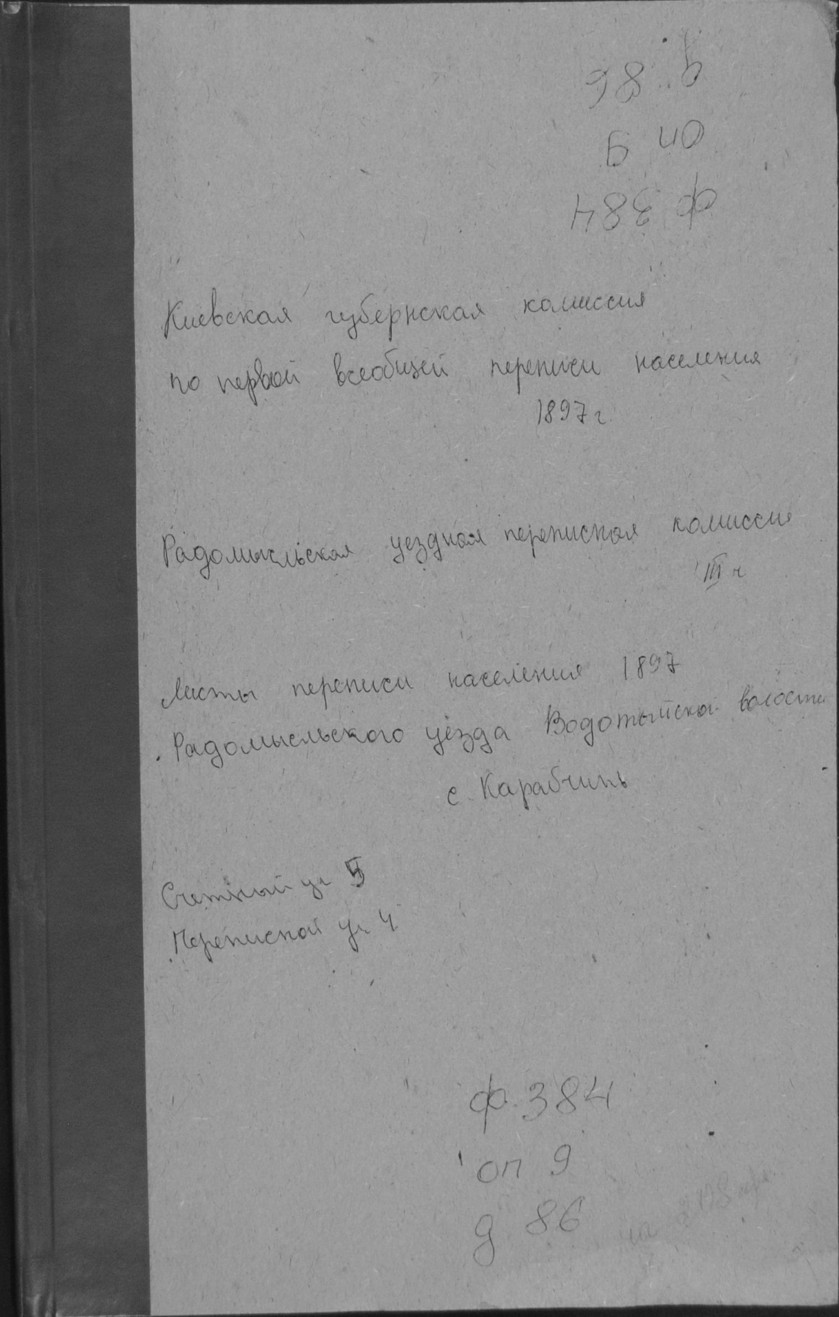 ф 384
оп 9
д 86
Киевская губернская комиссия
по первой всеобщей переписи населения
1897 г
Радомысльская уездная переписная комиссия
III ч
Листы переписи населения 1897
Радомысльского уезда Водотыйской волости
с. Карабчинь
Счетный уч 5
Переписной уч 4
ф. 384
оп 9
д 86
на